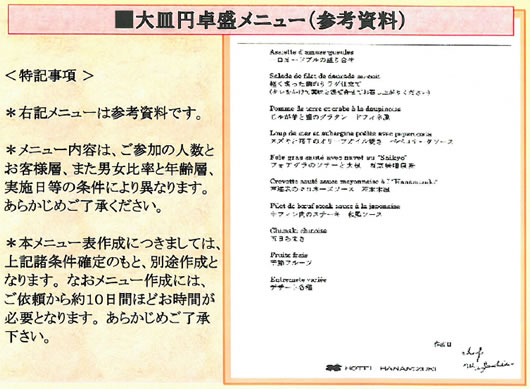 ■大皿円卓盛メニュー(参考資料)
＜特記事項 ＞
＊右記メニューは参考資料です。
＊メニュー内容は、ご参加の人数と
お客様層、また男女比率と年齢層、
実施日等の条件により異なります。
あらかじめご了承ください。
＊本メニュー表作成につきましては、
上記諸条件確定のもと、別途作成と
なります。なおメニュー作成には、
ご依頼から約10日間ほどお時間が
必要となります。あらかじめご了承
下さい。
Assiette d'amuse-gueules
一口オードブルの盛り合せ
Salade de filet de daurade
軽く炙った鯛のサラダ仕立て
Pomme de terre et crabe à la dauphinoise
じゃが芋と蟹のグラタン ドフィネ風
Loup de mer et aubergine poêlés avec
Foie gras sauté avec navet au "Saikyo"
フォアグラのソテーと大根
Crevette sauté sauce mayonnaise à l'"Hanamizuki"
Filet de bœuf steak sauce à la japonaise
牛フィレ肉のステーキ 和風ソース
Chirashi
五目ちらし
Fruits frais
季節フルーツ
Entremets variés
デザート各種
HOTEL HANAMIZUKI